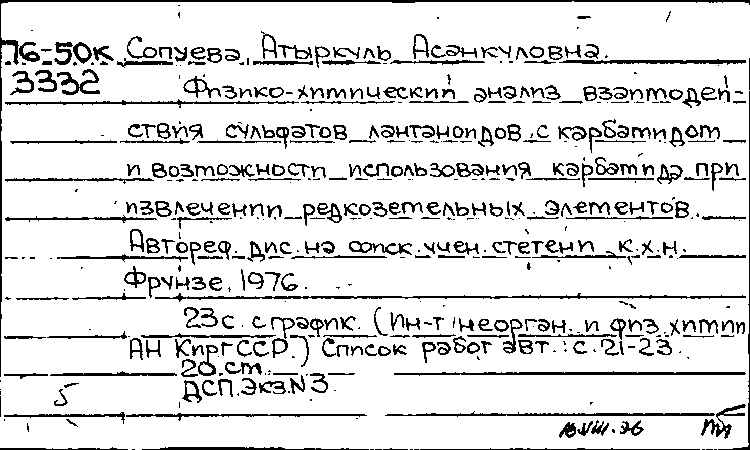 76-50к Сопуева, Атыркуль Асанкуловна.
3332 Физико-химический анализ взаимодей-
ствия сульфатов лантаноидов с карбамидом
и возможности использования карбамида при
извлечении редкоземельных элементов.
Автореф. дис. на соиск. учен. степени к.х.н.
Фрунзе, 1976.
23с. с график. (Ин-т неорган. и физ. химии
АН КиргССР.) Список работ авт.: с. 21-23.
20 см.
ДСП. Экз. N 3.
5